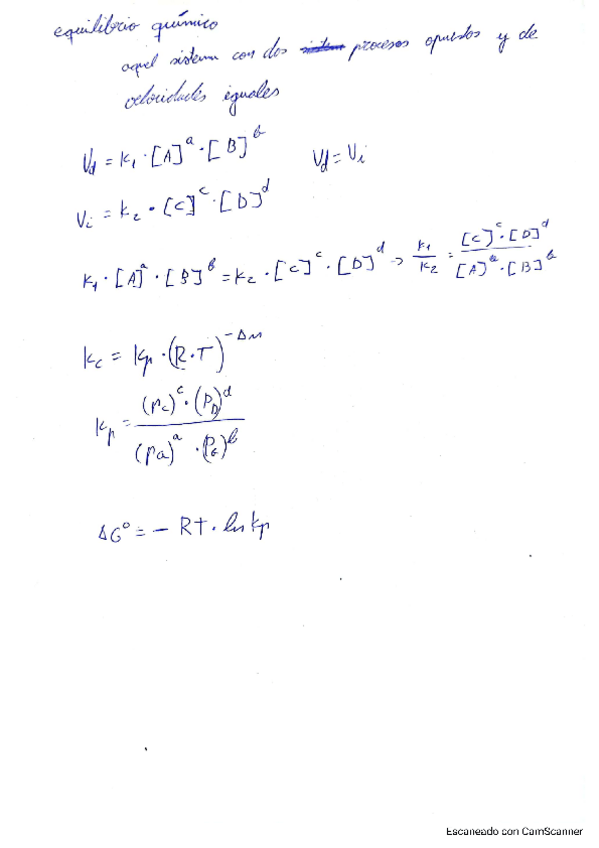 equilibrio químico
aquel sistema con dos procesos opuestos y de
velocidades iguales
Vd = K1 · [A]^a · [B]^b    Vd = Vi
Vi = K2 · [C]^c · [D]^d
K1 · [A]^a · [B]^b = K2 · [C]^c · [D]^d → K1/K2 = [C]^c · [D]^d / [A]^a · [B]^b
Kc = Kp · (R · T)^-Δn
Kp = (Pc)^c · (PD)^d / (Pa)^a · (PB)^b
ΔG° = - RT · ln Kp
Escaneado con CamScanner